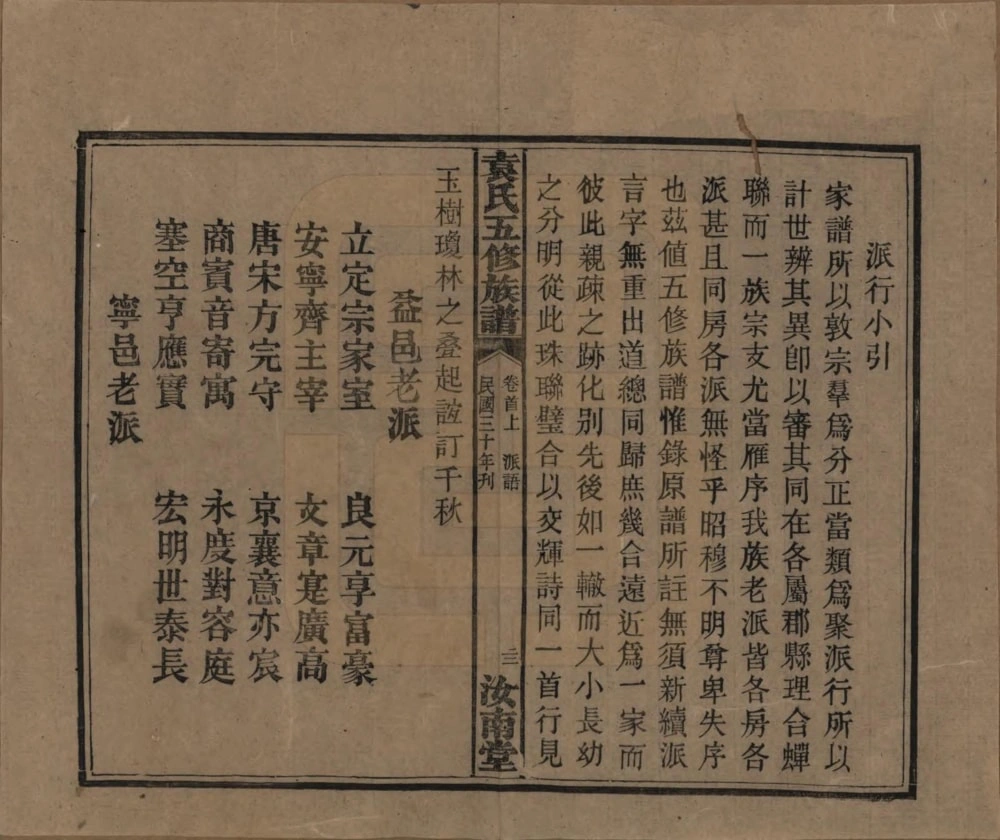 派行小引
家譜所以敦宗羣爲分正當類爲聚派行所以
計世辨其異卽以審其同在各屬郡縣理合蟬
聯而一族宗支尤當雁序我族老派皆各房各
派甚且同房各派無怪乎昭穆不明尊卑失序
也茲值五修族譜惟錄原譜所註無須新續派
言字無重出道總同歸庶幾合遠近爲一家而
彼此親疎之跡化別先後如一轍而大小長幼
之分明從此珠聯璧合以交輝詩同一首行見
袁氏五修族譜
卷首上 派語
民國三十年刊
三
汝南堂
玉樹瓊林之叠起誼訂千秋
益邑老派
立定宗家室 良元享富豪
安寧齊主宰 文章寔廣高
唐宋方完守 京襄意亦宸
商賓音寄寓 永度對容庭
塞空亨應寶 宏明世泰長
寧邑老派